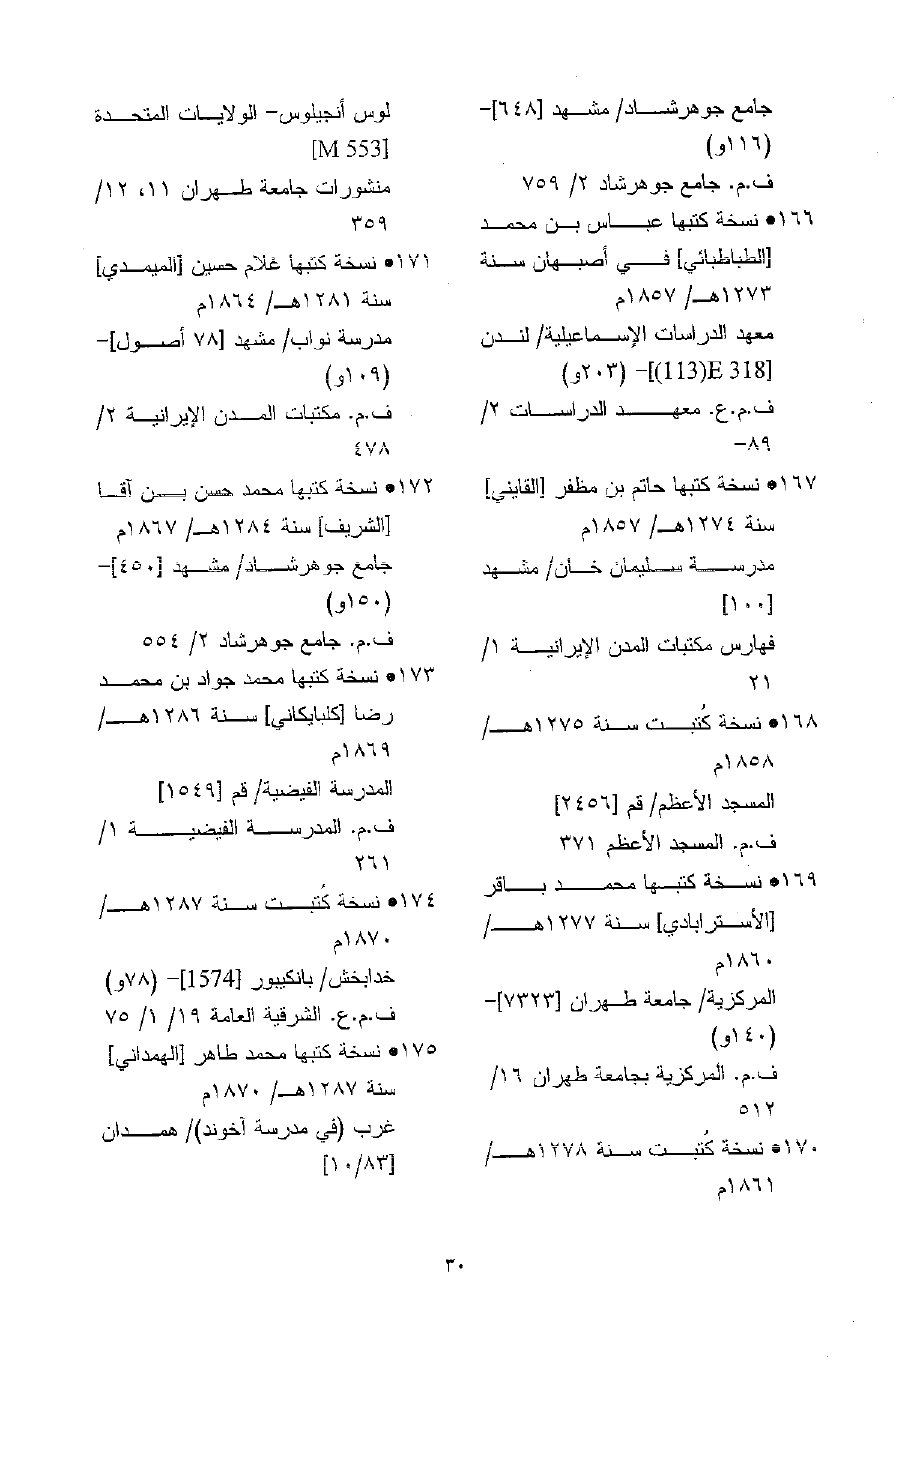 جامع جوهرشاد/ مشهد [٦٤٨]-
(١١٦و)
ف.م. جامع جوهرشاد ٢/ ٧٥٩
١٦٦• نسخة كتبها عباس بن محمد
[الطباطبائي] في أصبهان سنة
١٢٧٣هـ/ ١٨٥٧م
معهد الدراسات الإسماعيلية/ لندن
[113)E 318)]- (٢٠٣و)
ف.م.ع. معهد الدراسات ٢/
٨٩-
١٦٧• نسخة كتبها حاتم بن مظفر [القايني]
سنة ١٢٧٤هـ/ ١٨٥٧م
مدرسة سليمان خان/ مشهد
[١٠٠]
فهارس مكتبات المدن الإيرانية ١/
٢١
١٦٨• نسخة كُتبت سنة ١٢٧٥هـ/
١٨٥٨م
المسجد الأعظم/ قم [٢٤٥٦]
ف.م. المسجد الأعظم ٣٧١
١٦٩• نسخة كتبها محمد باقر
[الأسترابادي] سنة ١٢٧٧هـ/
١٨٦٠م
المركزية/ جامعة طهران [٧٣٢٣]-
(١٤٠و)
ف.م. المركزية بجامعة طهران ١٦/
٥١٢
١٧٠• نسخة كُتبت سنة ١٢٧٨هـ/
١٨٦١م
لوس أنجيلوس- الولايات المتحدة
[M 553]
منشورات جامعة طهران ١١، ١٢/
٣٥٩
١٧١• نسخة كتبها غلام حسين [الميمدي]
سنة ١٢٨١هـ/ ١٨٦٤م
مدرسة نواب/ مشهد [٧٨ أصول]-
(١٠٩و)
ف.م. مكتبات المدن الإيرانية ٢/
٤٧٨
١٧٢• نسخة كتبها محمد حسن بن آقا
[الشريف] سنة ١٢٨٤هـ/ ١٨٦٧م
جامع جوهرشاد/ مشهد [٤٥٠]-
(١٥٠و)
ف.م. جامع جوهرشاد ٢/ ٥٥٤
١٧٣• نسخة كتبها محمد جواد بن محمد
رضا [كلبايكاني] سنة ١٢٨٦هـ/
١٨٦٩م
المدرسة الفيضية/ قم [١٥٤٩]
ف.م. المدرسة الفيضية ١/
٢٦١
١٧٤• نسخة كُتبت سنة ١٢٨٧هـ/
١٨٧٠م
خدابخش/ بانكيبور [1574]- (٧٨و)
ف.م.ع. الشرقية العامة ١٩/ ١/ ٧٥
١٧٥• نسخة كتبها محمد طاهر [الهمداني]
سنة ١٢٨٧هـ/ ١٨٧٠م
غرب (في مدرسة آخوند)/ همدان
[١٠/٨٣]
٣٠